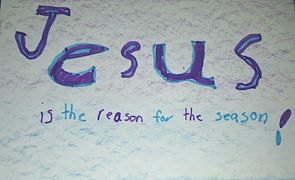 Jesus
is the reason for the season!